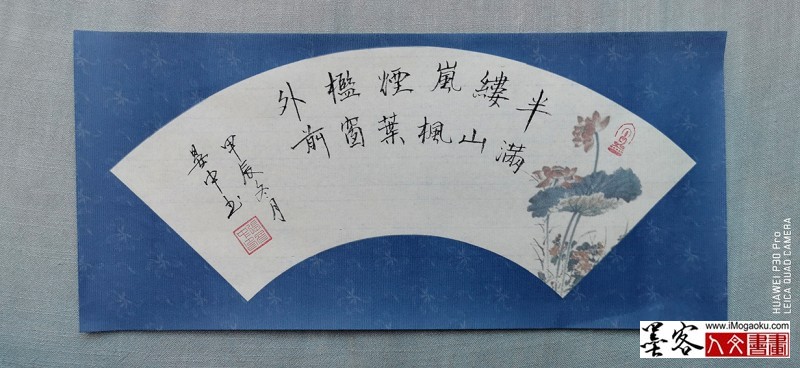 半縷嵐煙檻外
滿山楓葉窗前
甲辰冬月
中书
HUAWEI P30 Pro
LEICA QUAD CAMERA
www.iMogaoku.com
墨客
人文書畫